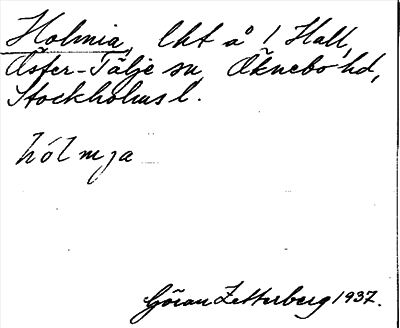 Holmia, lht å 1 Hall,
Öster-Tälje sn, Öknebo hd,
Stockholms l.
hólmja
Göran Zetterberg 1937.